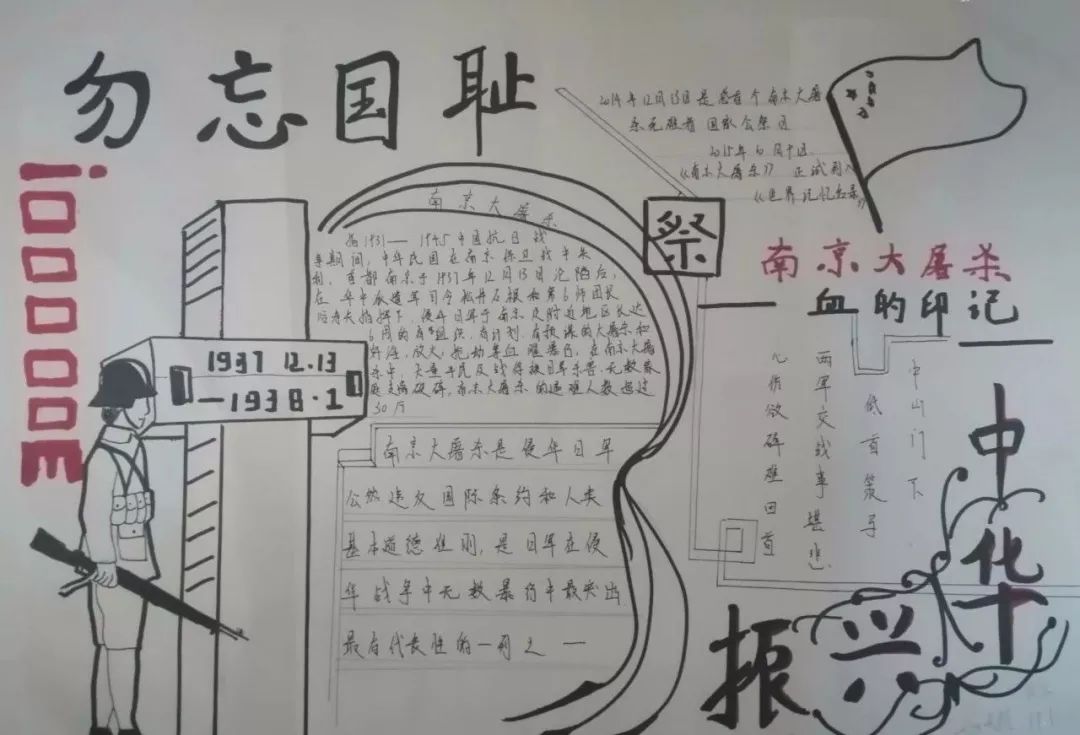 勿忘国耻
2014年12月13日是首个南京大屠
杀死难者国家公祭日
2015年10月9日
《南京大屠杀》正式列入
《世界记忆名录》
祭
南京大屠杀
血的印记
100000E
1937 12.13
—1938·1
南京大屠杀
指1931—1945中国抗日战
争期间,中华民国在南京保卫战中失
利,首都南京于1937年12月13日沦陷后,
在华中派遣军司令松井石根和第6师团长
谷寿夫指挥下,侵华日军于南京及附近地区长达
6周的有组织、有计划、有预谋的大屠杀和
奸淫、放火、抢劫等血腥暴行,在南京大屠
杀中,大量平民及战俘被日军杀害,无数家
庭支离破碎,南京大屠杀的遇难人数超过
30万
南京大屠杀是侵华日军
公然违反国际条约和人类
基本道德准则,是日军在侵
华战争中无数暴行中最突出
最有代表性的一例之一
中山门下
低首策子
两军交战事堪悲
心伤欲碎难回首
振兴
中华